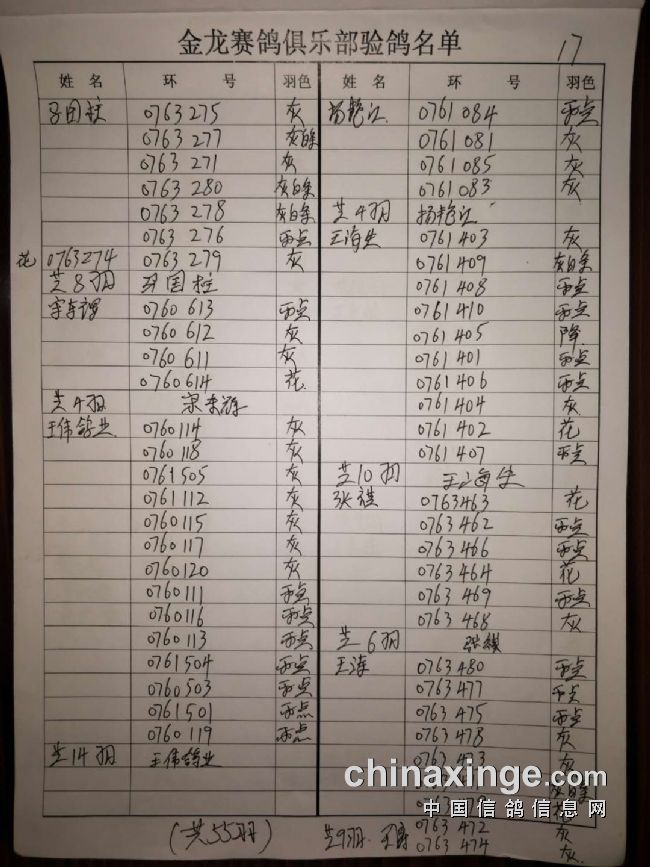 金龙赛鸽俱乐部验鸽名单
17
姓 名 环 号 羽色
0763 275 灰
0763 277 灰白条
0763 271 灰
0763 280 灰白条
0763 278 灰白条
0763 276 雨点
花 0763274 0763 279 灰
共8羽 国柱
0760 613 雨点
0760 612 灰
0760 611 灰
0760 614 花
共4羽
王伟鸽业 0760114 灰
0760 118 灰
0761505 灰
0761 112 灰
0760 115 灰
0760 117 灰
0760120 灰
0760111 雨点
0760116 雨点
0760 113 雨点
0761 504 雨点
0760503 雨点
0761 501 雨点
0760 119 雨点
共14羽 王伟鸽业
(共55羽)
姓 名 环 号 羽色
杨艳江 0761 084 雨点
0761 081 灰
0761 085 灰
0761 083 灰
共4羽 杨艳江
王海生 0761 403 灰
0761 409 灰白条
0761 408 雨点
0761 410 雨点
0761 405 降
0761 401 雨点
0761 406 雨点
0761 404 灰
0761 402 花
0761 407 雨点
共10羽 王海生
张祺 0763463 花
0763 462 雨点
0763 466 雨点
0763 464 花
0763 469 雨点
0763 468 灰
共6羽 张祺
王涛 0763 480 雨点
0763 477 雨点
0763 475 雨点
0763 478 灰
灰
花
共9羽 王涛 0763 472 灰
0763 474 灰
chinaxinge.com
中国信鸽信息网